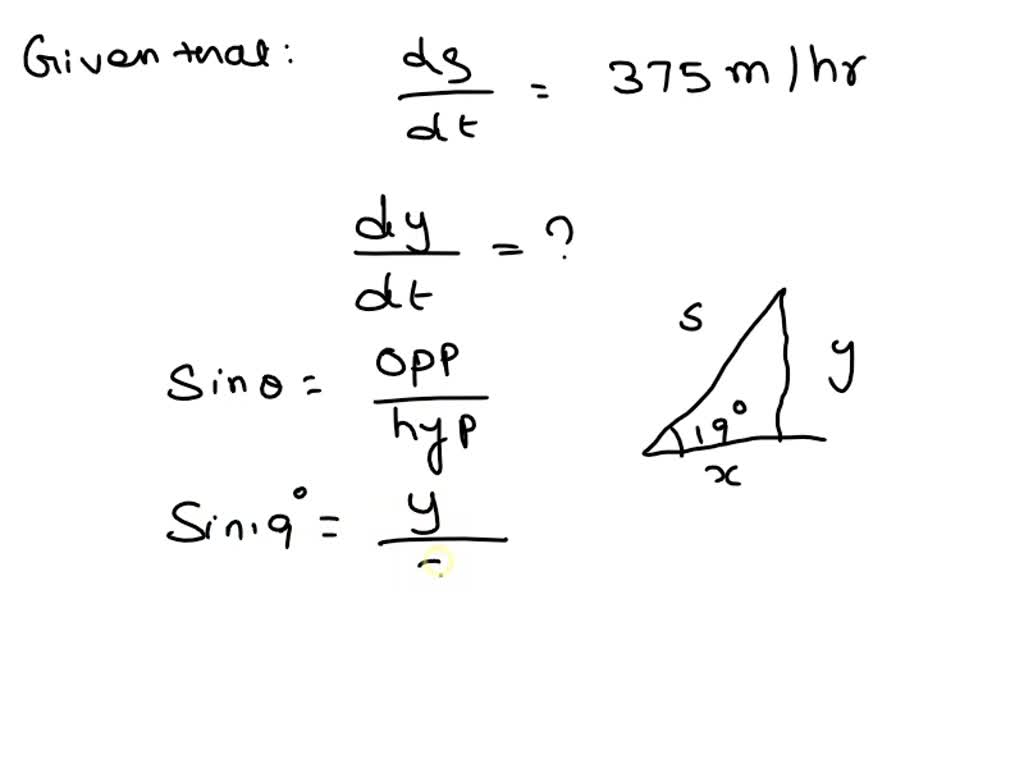 Given that: ds/dt = 375 m/hr
dy/dt = ?
Sinθ = opp/hyp
s
y
19°
x
Sin19° = y/